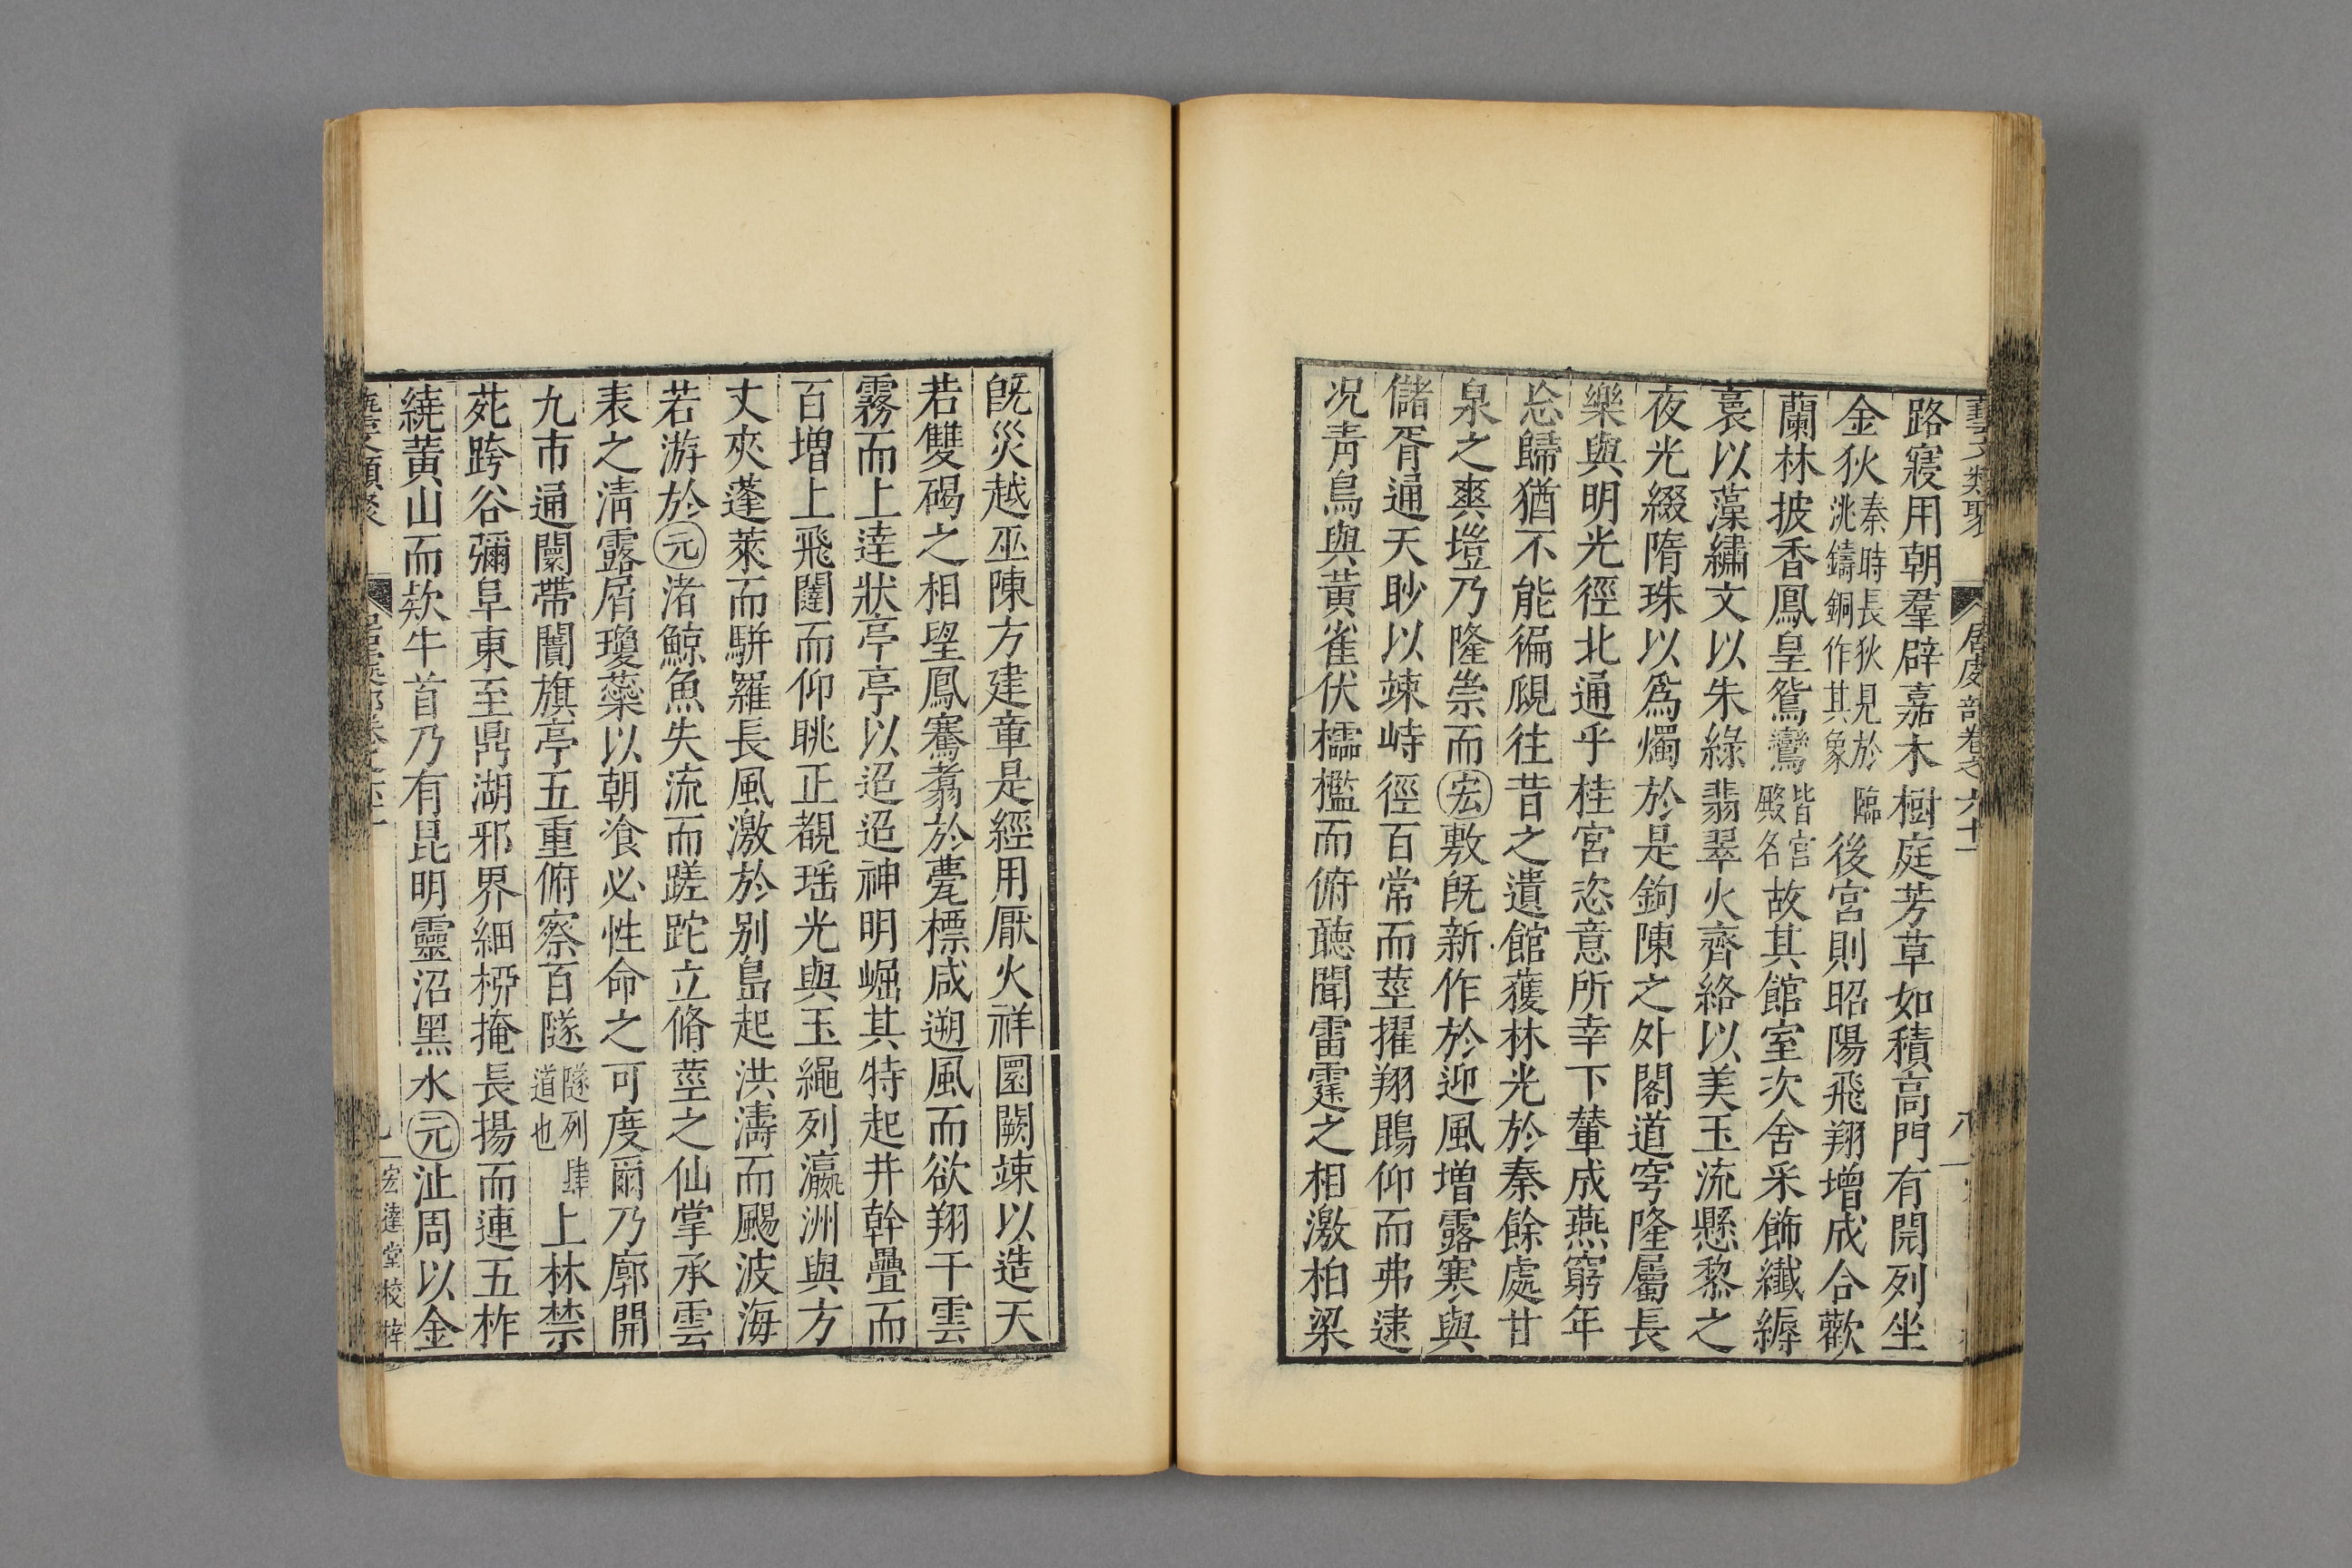 藝文類聚 居處部卷之六十一 八
路寢用朝羣辟嘉木樹庭芳草如積高門有閌列坐
金狄秦時長狄見於臨洮鑄銅作其象後宮則昭陽飛翔增成合歡
蘭林披香鳳皇鴛鸞皆宮殿名故其館室次舍采飾纖縟
裛以藻繡文以朱綠翡翠火齊絡以美玉流懸黎之
夜光綴隋珠以爲燭於是鉤陳之外閣道穹隆屬長
樂與明光徑北通乎桂宮恣意所幸下輦成燕窮年
忘歸猶不能徧覛往昔之遺館獲林光於秦餘處甘
泉之爽塏乃隆崇而宏敷旣新作於迎風增露寒與
儲胥通天眇以竦峙徑百常而莖擢翔鵾仰而弗逮
况靑鳥與黃雀伏櫺檻而俯聽聞雷霆之相激柏梁
旣災越巫陳方建章是經用厭火祥圜闕竦以造天
若雙碣之相望鳳騫翥於甍標咸遡風而欲翔干雲
霧而上達狀亭亭以迢迢神明崛其特起井幹疊而
百增上飛闥而仰眺正覩瑶光與玉繩列瀛洲與方
丈夾蓬萊而駢羅長風激於別島起洪濤而颺波海
若游於元渚鯨魚失流而蹉跎立脩莖之仙掌承雲
表之淸露屑瓊蘂以朝飡必性命之可度爾乃廓開
九市通闤帶闠旗亭五重俯察百隧隧列肆道也上林禁
苑跨谷彌阜東至鼎湖邪界細柳掩長揚而連五柞
繞黃山而欵牛首乃有昆明靈沼黑水元沚周以金
藝文類聚 居處部卷之六十一 九 宏達堂校梓